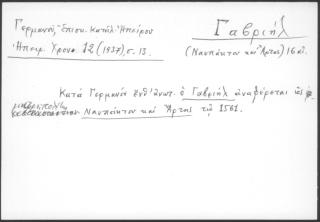 Γερμανοῦ, Ἐπισκ. Κατάλ. Ἠπείρου
Ἠπειρ. Χρονικ. 12 (1937), σ. 13.
Γαβριὴλ
(Ναυπάκτου καὶ Ἄρτης) 16 αἰ.
Κατὰ Γερμανὸν ἔνθ' ἀνωτ. ὁ Γαβριὴλ ἀναφέρεται ὡς
μητροπολίτης
Ναυπάκτου καὶ Ἄρτης τῷ 1561.